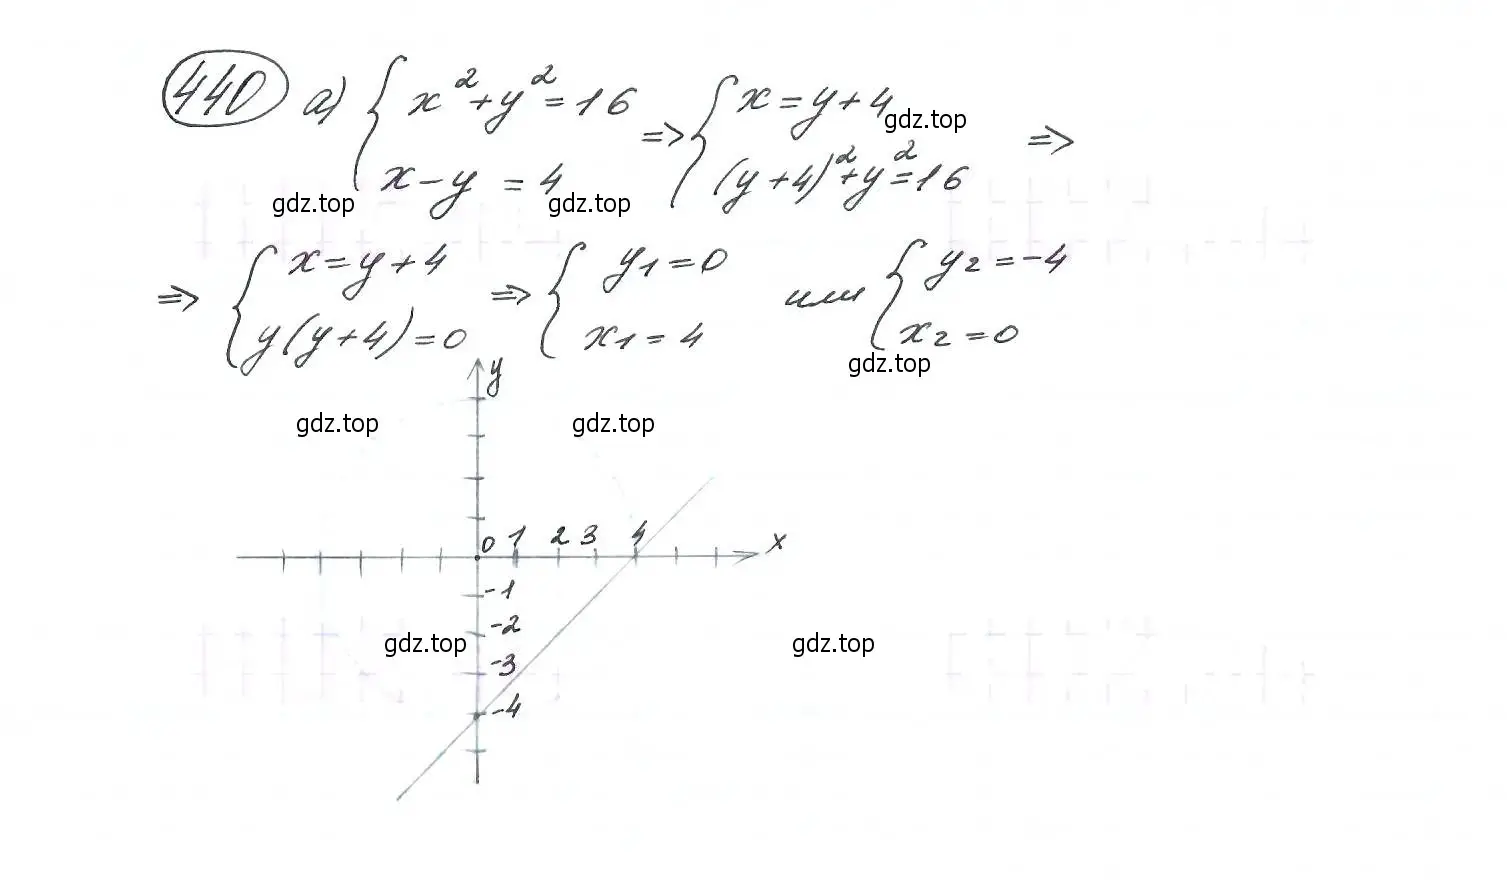 440 а) { x² + y² = 16 => { x = y + 4 =>
x - y = 4 (y + 4)² + y² = 16
gdz.top
gdz.top gdz.top
=> { x = y + 4 => { y1 = 0 или { y2 = -4
y(y + 4) = 0 x1 = 4 x2 = 0
gdz.top
y
gdz.top gdz.top
0 1 2 3 4 x
-1
-2
gdz.top gdz.top
-3
-4